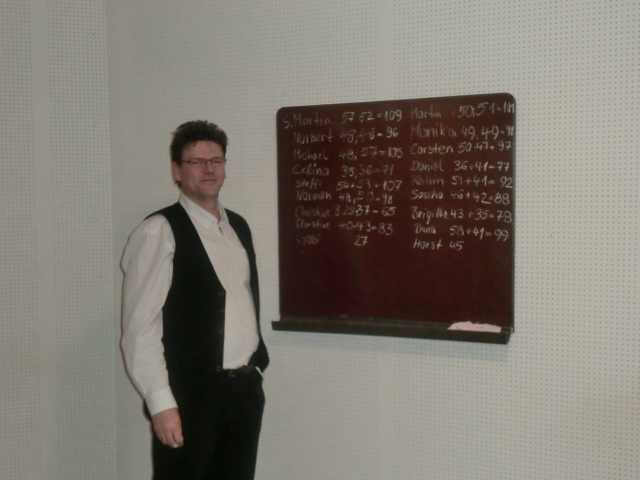 S. Martin 57+52=109
Norbert 48+48=96
Michael 48+57=105
Celina 35+36=71
Steffi 107
Norman 98
Christian 65
Christine 40+43=83
27
Marta 50+51=101
Monika 49+49=98
Carsten 50+47=97
Daniel 36+41=77
51+41=92
Sascha 46+42=88
Brigitte 43+35=78
58+41=99
Horst 45